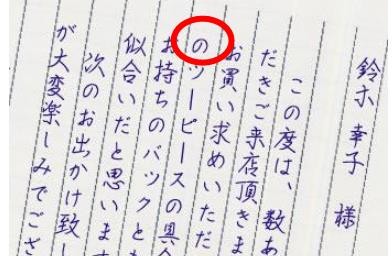 鈴木幸子 様
この度は、数あ
だきご来店頂きま
お買い求めいただ
のツーピースの具合
お持ちのバックとも
似合いだと思います
次のお出かけ致し
が大変楽しみでござ